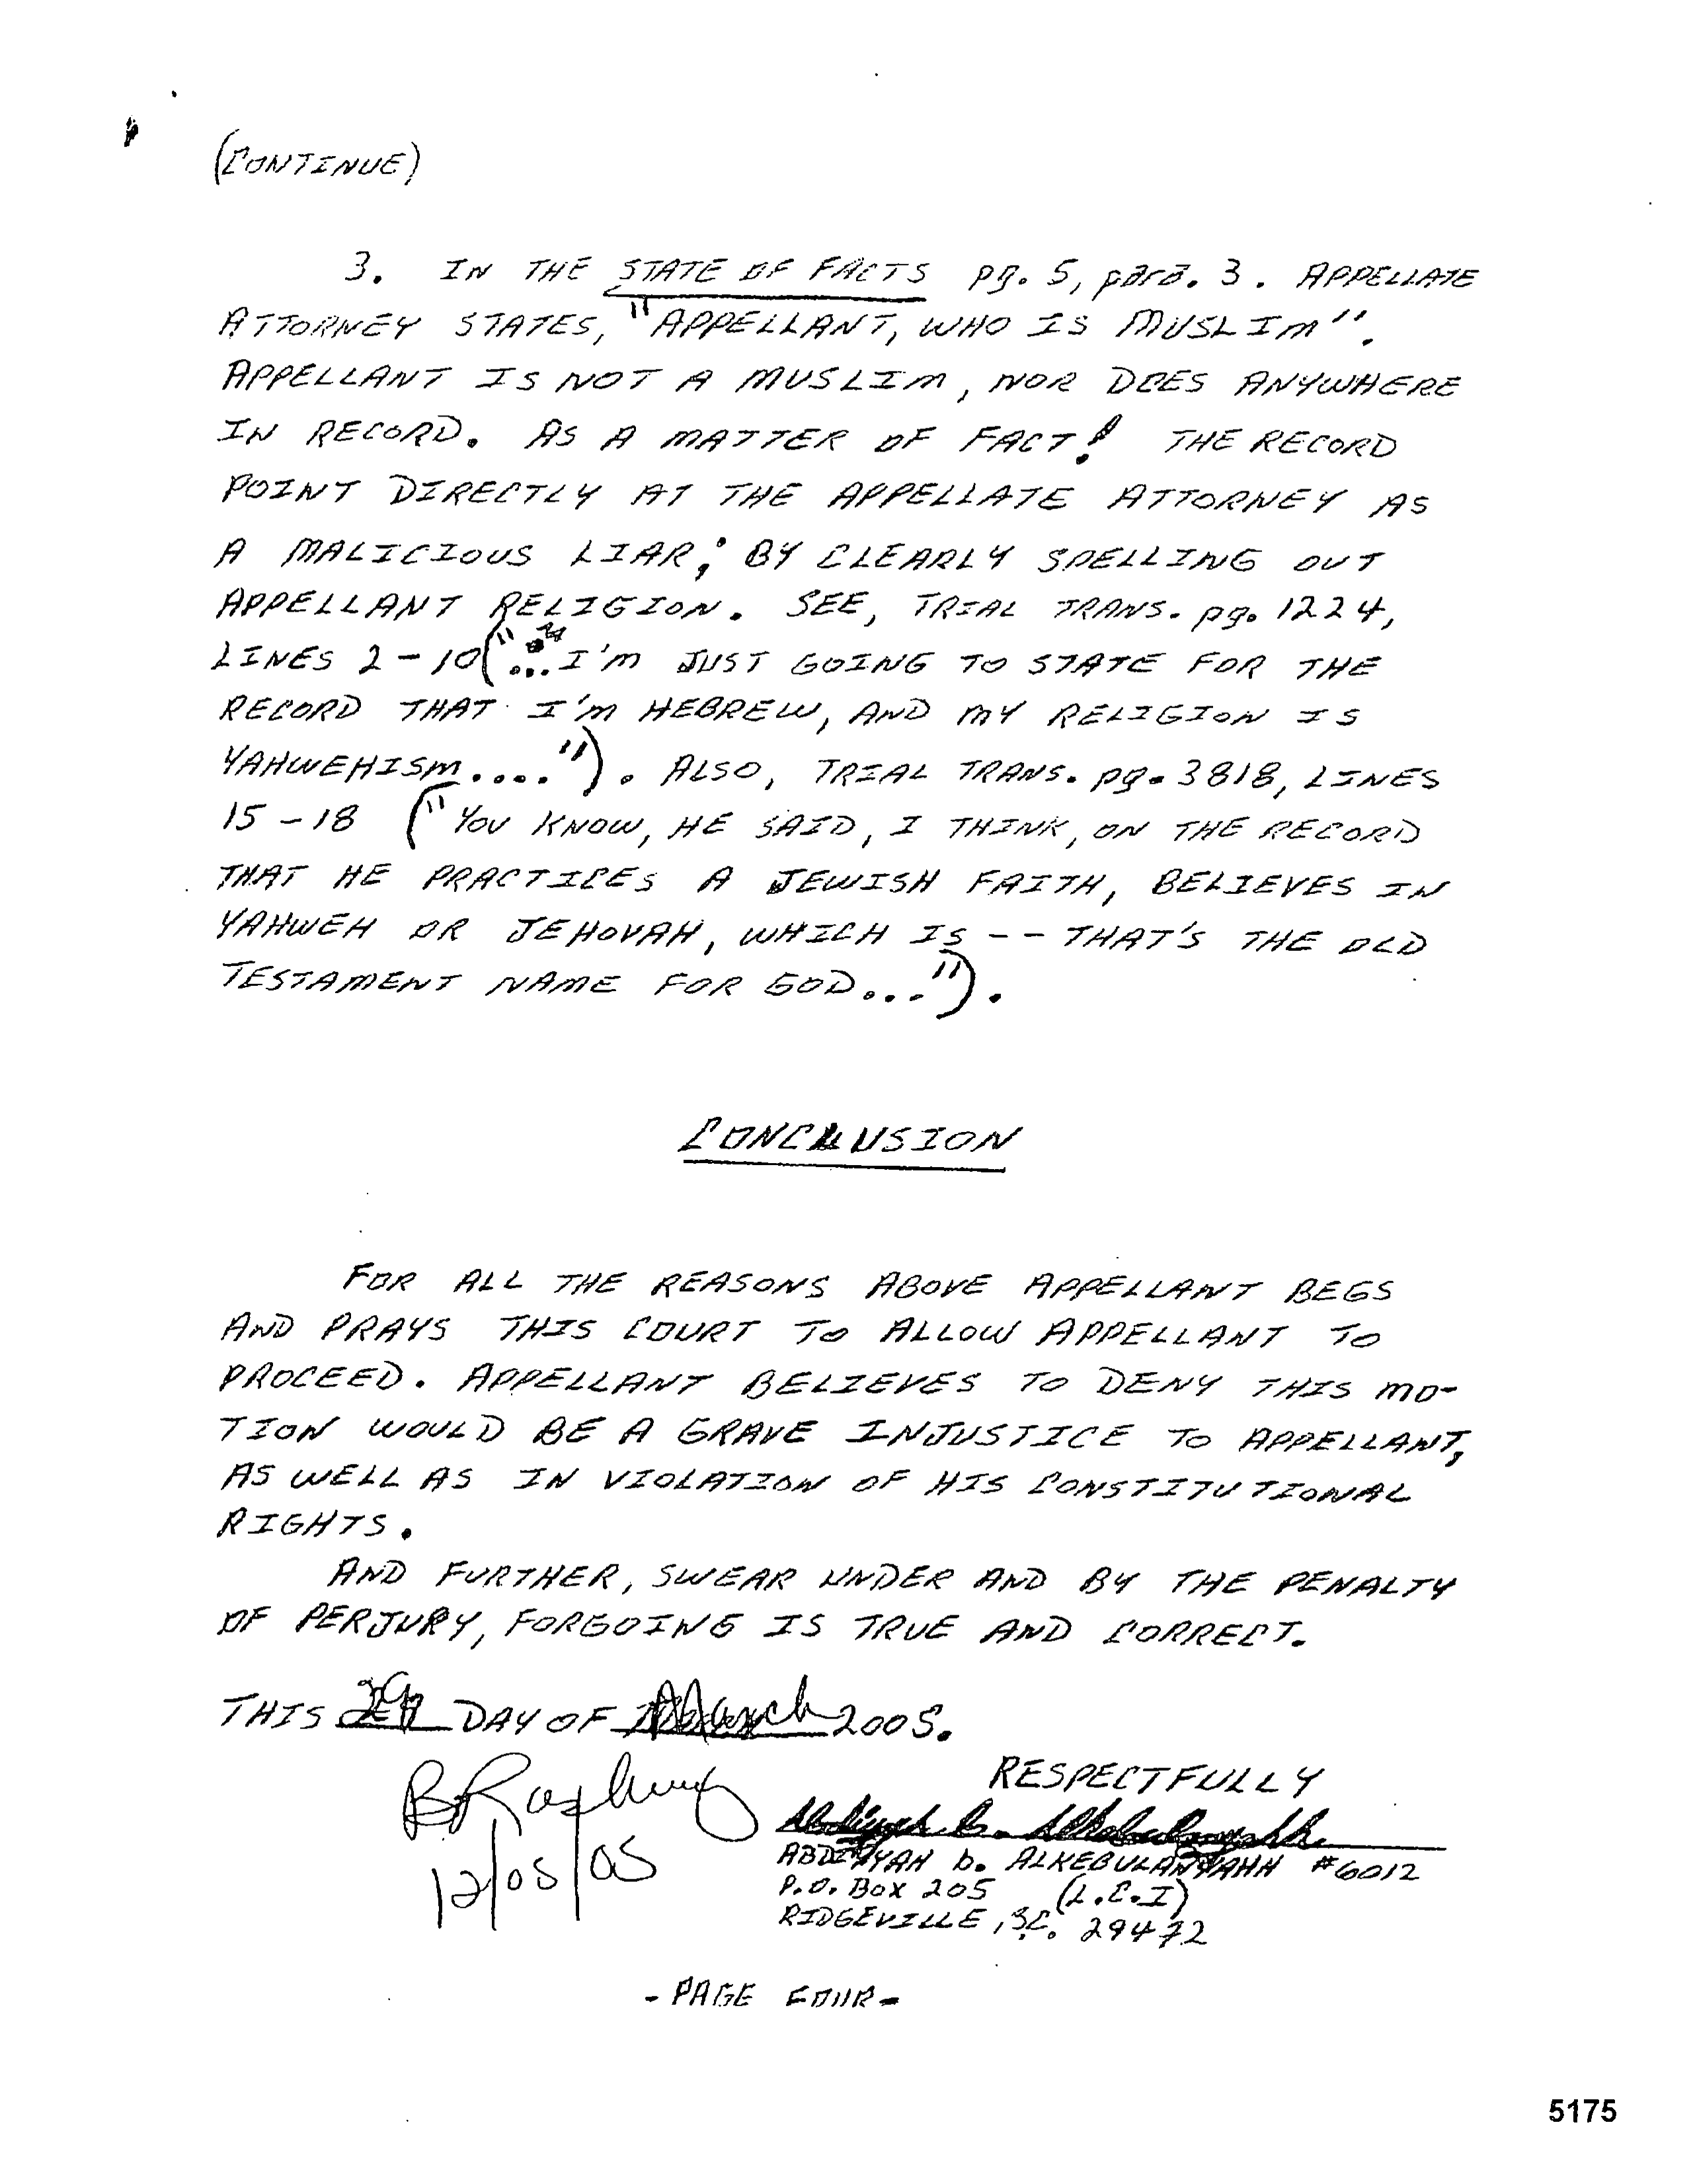 (CONTINUE)
3. IN THE STATE OF FACTS pg. 5, para. 3. APPELLATE
ATTORNEY STATES, "APPELLANT, WHO IS MUSLIM".
APPELLANT IS NOT A MUSLIM, NOR DOES ANYWHERE
IN RECORD. AS A MATTER OF FACT! THE RECORD
POINT DIRECTLY AT THE APPELLATE ATTORNEY AS
A MALICIOUS LIAR; BY CLEARLY SPELLING OUT
APPELLANT RELIGION. SEE, TRIAL TRANS. pg. 1224,
LINES 2-10("...I'm JUST GOING TO STATE FOR THE
RECORD THAT I'm HEBREW, AND MY RELIGION IS
YAHWEHISM...."). ALSO, TRIAL TRANS. pg. 3818, LINES
15-18 ("YOU KNOW, HE SAID, I THINK, ON THE RECORD
THAT HE PRACTICES A JEWISH FAITH, BELIEVES IN
YAHWEH OR JEHOVAH, WHICH IS -- THAT'S THE OLD
TESTAMENT NAME FOR GOD...").
CONCLUSION
FOR ALL THE REASONS ABOVE APPELLANT BEGS
AND PRAYS THIS COURT TO ALLOW APPELLANT TO
PROCEED. APPELLANT BELIEVES TO DENY THIS MO-
TION WOULD BE A GRAVE INJUSTICE TO APPELLANT,
AS WELL AS IN VIOLATION OF HIS CONSTITUTIONAL
RIGHTS.
AND FURTHER, SWEAR UNDER AND BY THE PENALTY
OF PERJURY, FORGOING IS TRUE AND CORRECT.
THIS DAY OF March 2005.
RESPECTFULLY
12/05/05
ABDIYYAH b. ALKEBULANYAHH #6012
P.O. BOX 205 (L.C.I)
RIDGEVILLE, SC. 29472
- PAGE FOUR -
5175